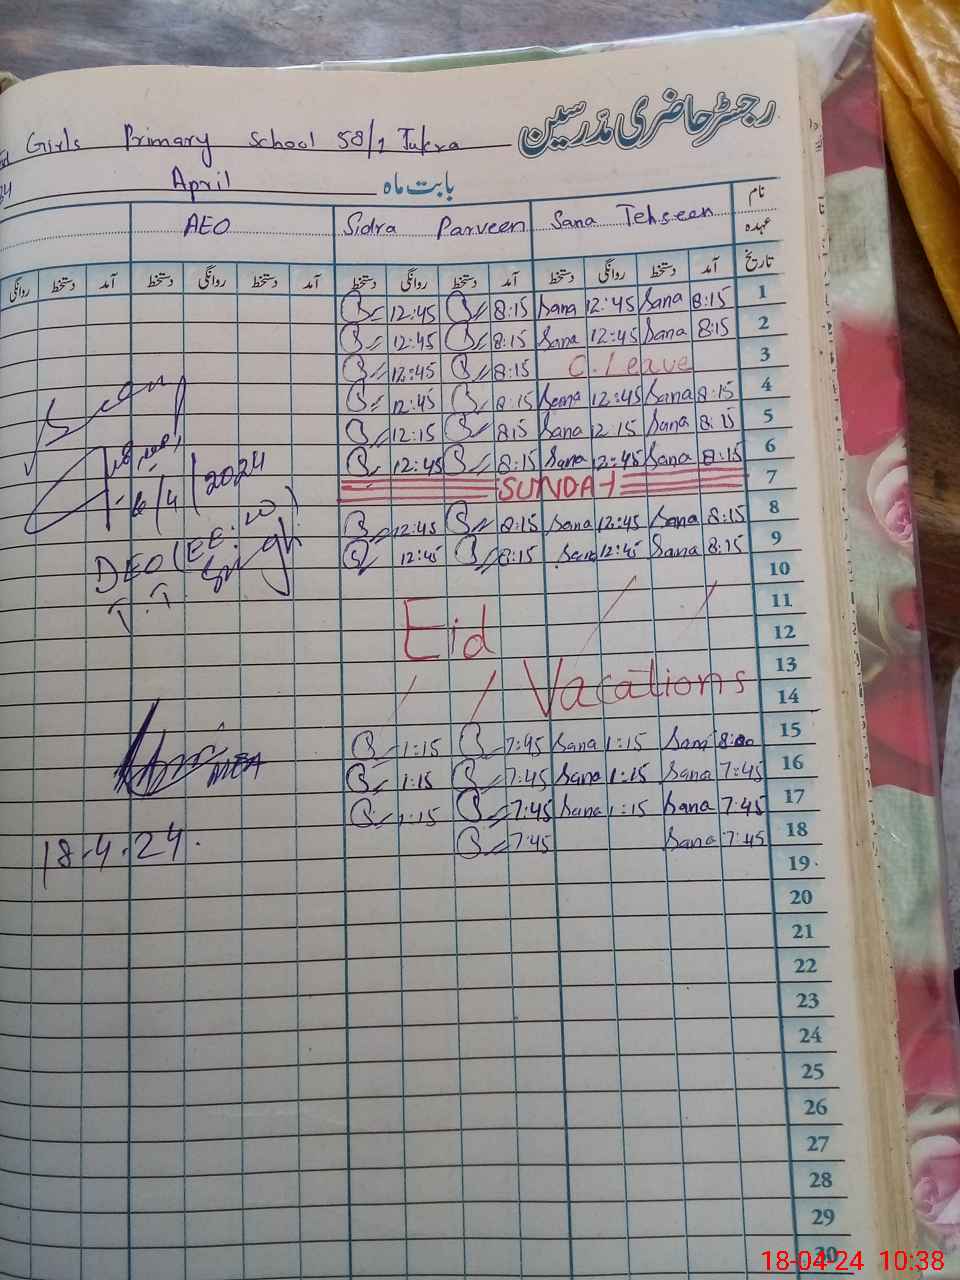 رجسٹر حاضری مدرسین
Girls Primary School 58/2 Tukra
بابت ماہ April
نام
عہدہ
Sana Tehseen
Sidra Parveen
AEO
تاریخ آمد دستخط روانگی دستخط آمد دستخط روانگی دستخط آمد دستخط روانگی دستخط آمد دستخط روانگی
12:45 8:15 Sana 12:45 Sana 8:15 1
12:45 8:15 Sana 12:45 Sana 8:15 2
12:45 8:15 C. Leave 3
12:45 8:15 Sana 12:45 Sana 8:15 4
12:15 8:15 Sana 12:15 Sana 8:15 5
12:45 8:15 Sana 12:45 Sana 8:15 6
SUNDAY 7
12:45 8:15 Sana 12:45 Sana 8:15 8
12:45 8:15 Sana 12:45 Sana 8:15 9
10
11
Eid 12
13
Vacations 14
1:15 7:45 Sana 1:15 Sana 8:00 15
1:15 7:45 Sana 1:15 Sana 7:45 16
1:15 7:45 Sana 1:15 Sana 7:45 17
7:45 Sana 7:45 18
19
20
21
22
23
24
25
26
27
28
29
30
6/4/2024
DEO (EE. W)
T.T. Singh
MEA
18-4-24.
18-04-24 10:38